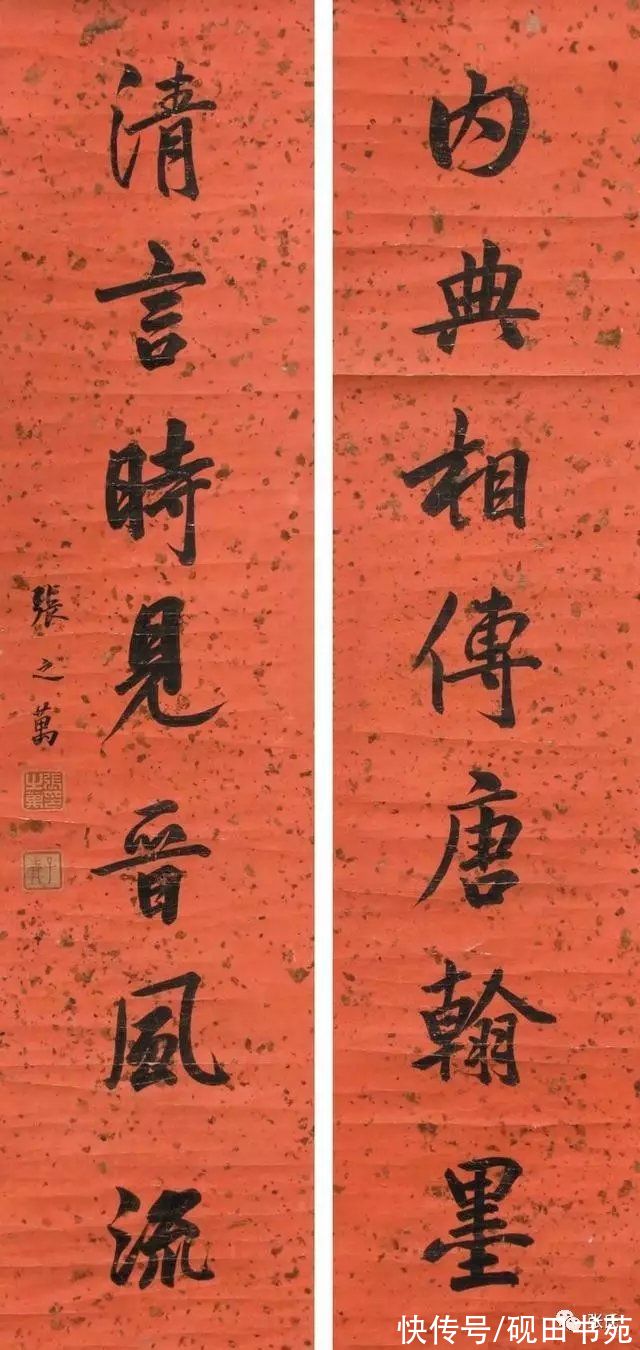 内典相傳唐翰墨
清言時見晉風流
張之萬
張之萬印
子青
快传号/砚田书苑